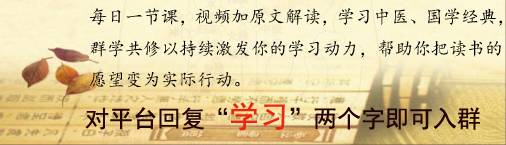 每日一节课，视频加原文解读，学习中医、国学经典，
群学共修以持续激发你的学习动力，帮助你把读书的
愿望变为实际行动。
对平台回复“学习”两个字即可入群